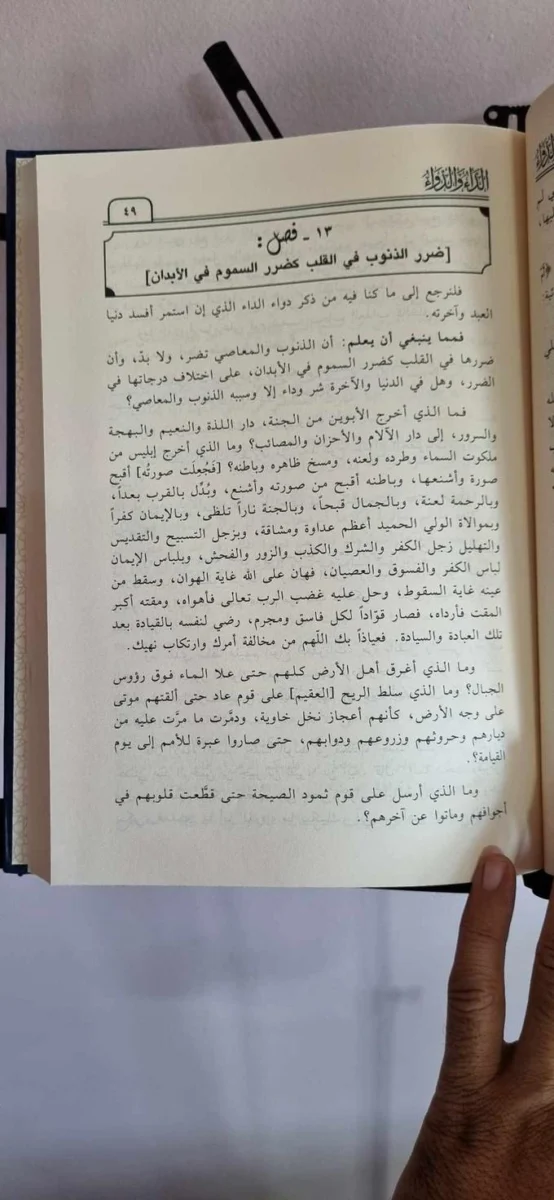 الداء والدواء
٤٩
١٣ - فصل:
[ضرر الذنوب في القلب كضرر السموم في الأبدان]
فلنرجع إلى ما كنا فيه من ذكر دواء الداء الذي إن استمر أفسد دنيا
العبد وآخرته.
فمما ينبغي أن يعلم: أن الذنوب والمعاصي تضر، ولا بدّ، وأن
ضررها في القلب كضرر السموم في الأبدان، على اختلاف درجاتها في
الضرر، وهل في الدنيا والآخرة شر وداء إلا وسببه الذنوب والمعاصي؟
فما الذي أخرج الأبوين من الجنة، دار اللذة والنعيم والبهجة
والسرور، إلى دار الآلام والأحزان والمصائب؟ وما الذي أخرج إبليس من
ملكوت السماء وطرده ولعنه، ومسخ ظاهره وباطنه؟ [فَجُعلَت صورتُه] أقبح
صورة وأشنعها، وباطنه أقبح من صورته وأشنع، وبُدِّل بالقرب بعداً،
وبالرحمة لعنة، وبالجمال قبحاً، وبالجنة ناراً تلظى، وبالإيمان كفراً
وبموالاة الولي الحميد أعظم عداوة ومشاقة، وبزجل التسبيح والتقديس
والتهليل زجل الكفر والشرك والكذب والزور والفحش، وبلباس الإيمان
لباس الكفر والفسوق والعصيان، فهان على الله غاية الهوان، وسقط من
عينه غاية السقوط، وحل عليه غضب الرب تعالى فأهواه، ومقته أكبر
المقت فأرداه، فصار قوّاداً لكل فاسق ومجرم، رضي لنفسه بالقيادة بعد
تلك العبادة والسيادة. فعياذاً بك اللّهم من مخالفة أمرك وارتكاب نهيك.
وما الذي أغرق أهل الأرض كلهم حتى علا الماء فوق رؤوس
الجبال؟ وما الذي سلط الريح [العقيم] على قوم عاد حتى ألقتهم موتى
على وجه الأرض، كأنهم أعجاز نخل خاوية، ودمَّرت ما مرَّت عليه من
ديارهم وحروثهم وزروعهم ودوابهم، حتى صاروا عبرة للأمم إلى يوم
القيامة؟.
وما الذي أرسل على قوم ثمود الصيحة حتى قطَّعت قلوبهم في
أجوافهم وماتوا عن آخرهم؟.